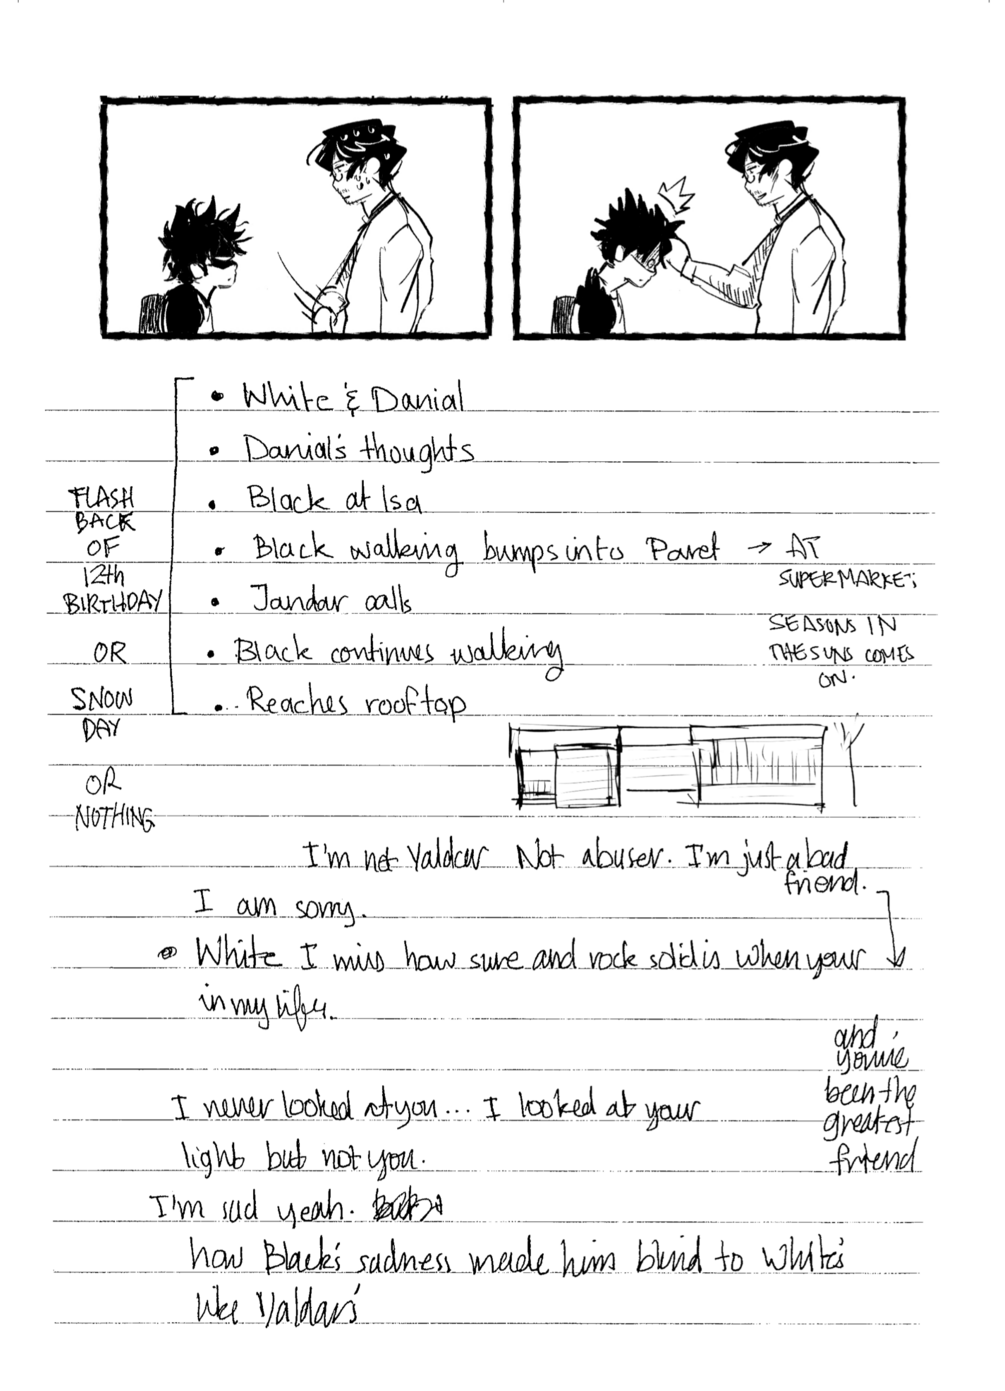 • White & Danial
• Danial's thoughts
• Black at Isa
• Black walking bumps into Pavet → AT
SUPERMARKET
• Jandar calls
• Black continues walking
SEASONS IN
THE SUNS COMES
ON.
•.. Reaches rooftop
FLASH
BACK
OF
12th
BIRTHDAY
OR
SNOW
DAY
OR
NOTHING.
I'm not Yaldar Not abuser. I'm just a bad
friend.
I am sorry.
• White I miss how sure and rock solid is when your
in my life.
and
you've
been the
greatest
friend
I never looked at you... I looked at your
light but not you.
I'm sad yeah.
how Black's sadness made him blind to White's
like Yaldar's